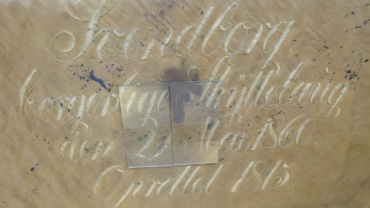 Svendborg
borgerlige Skyttelaug
den 29 Mai 1860
Oprettet 1815